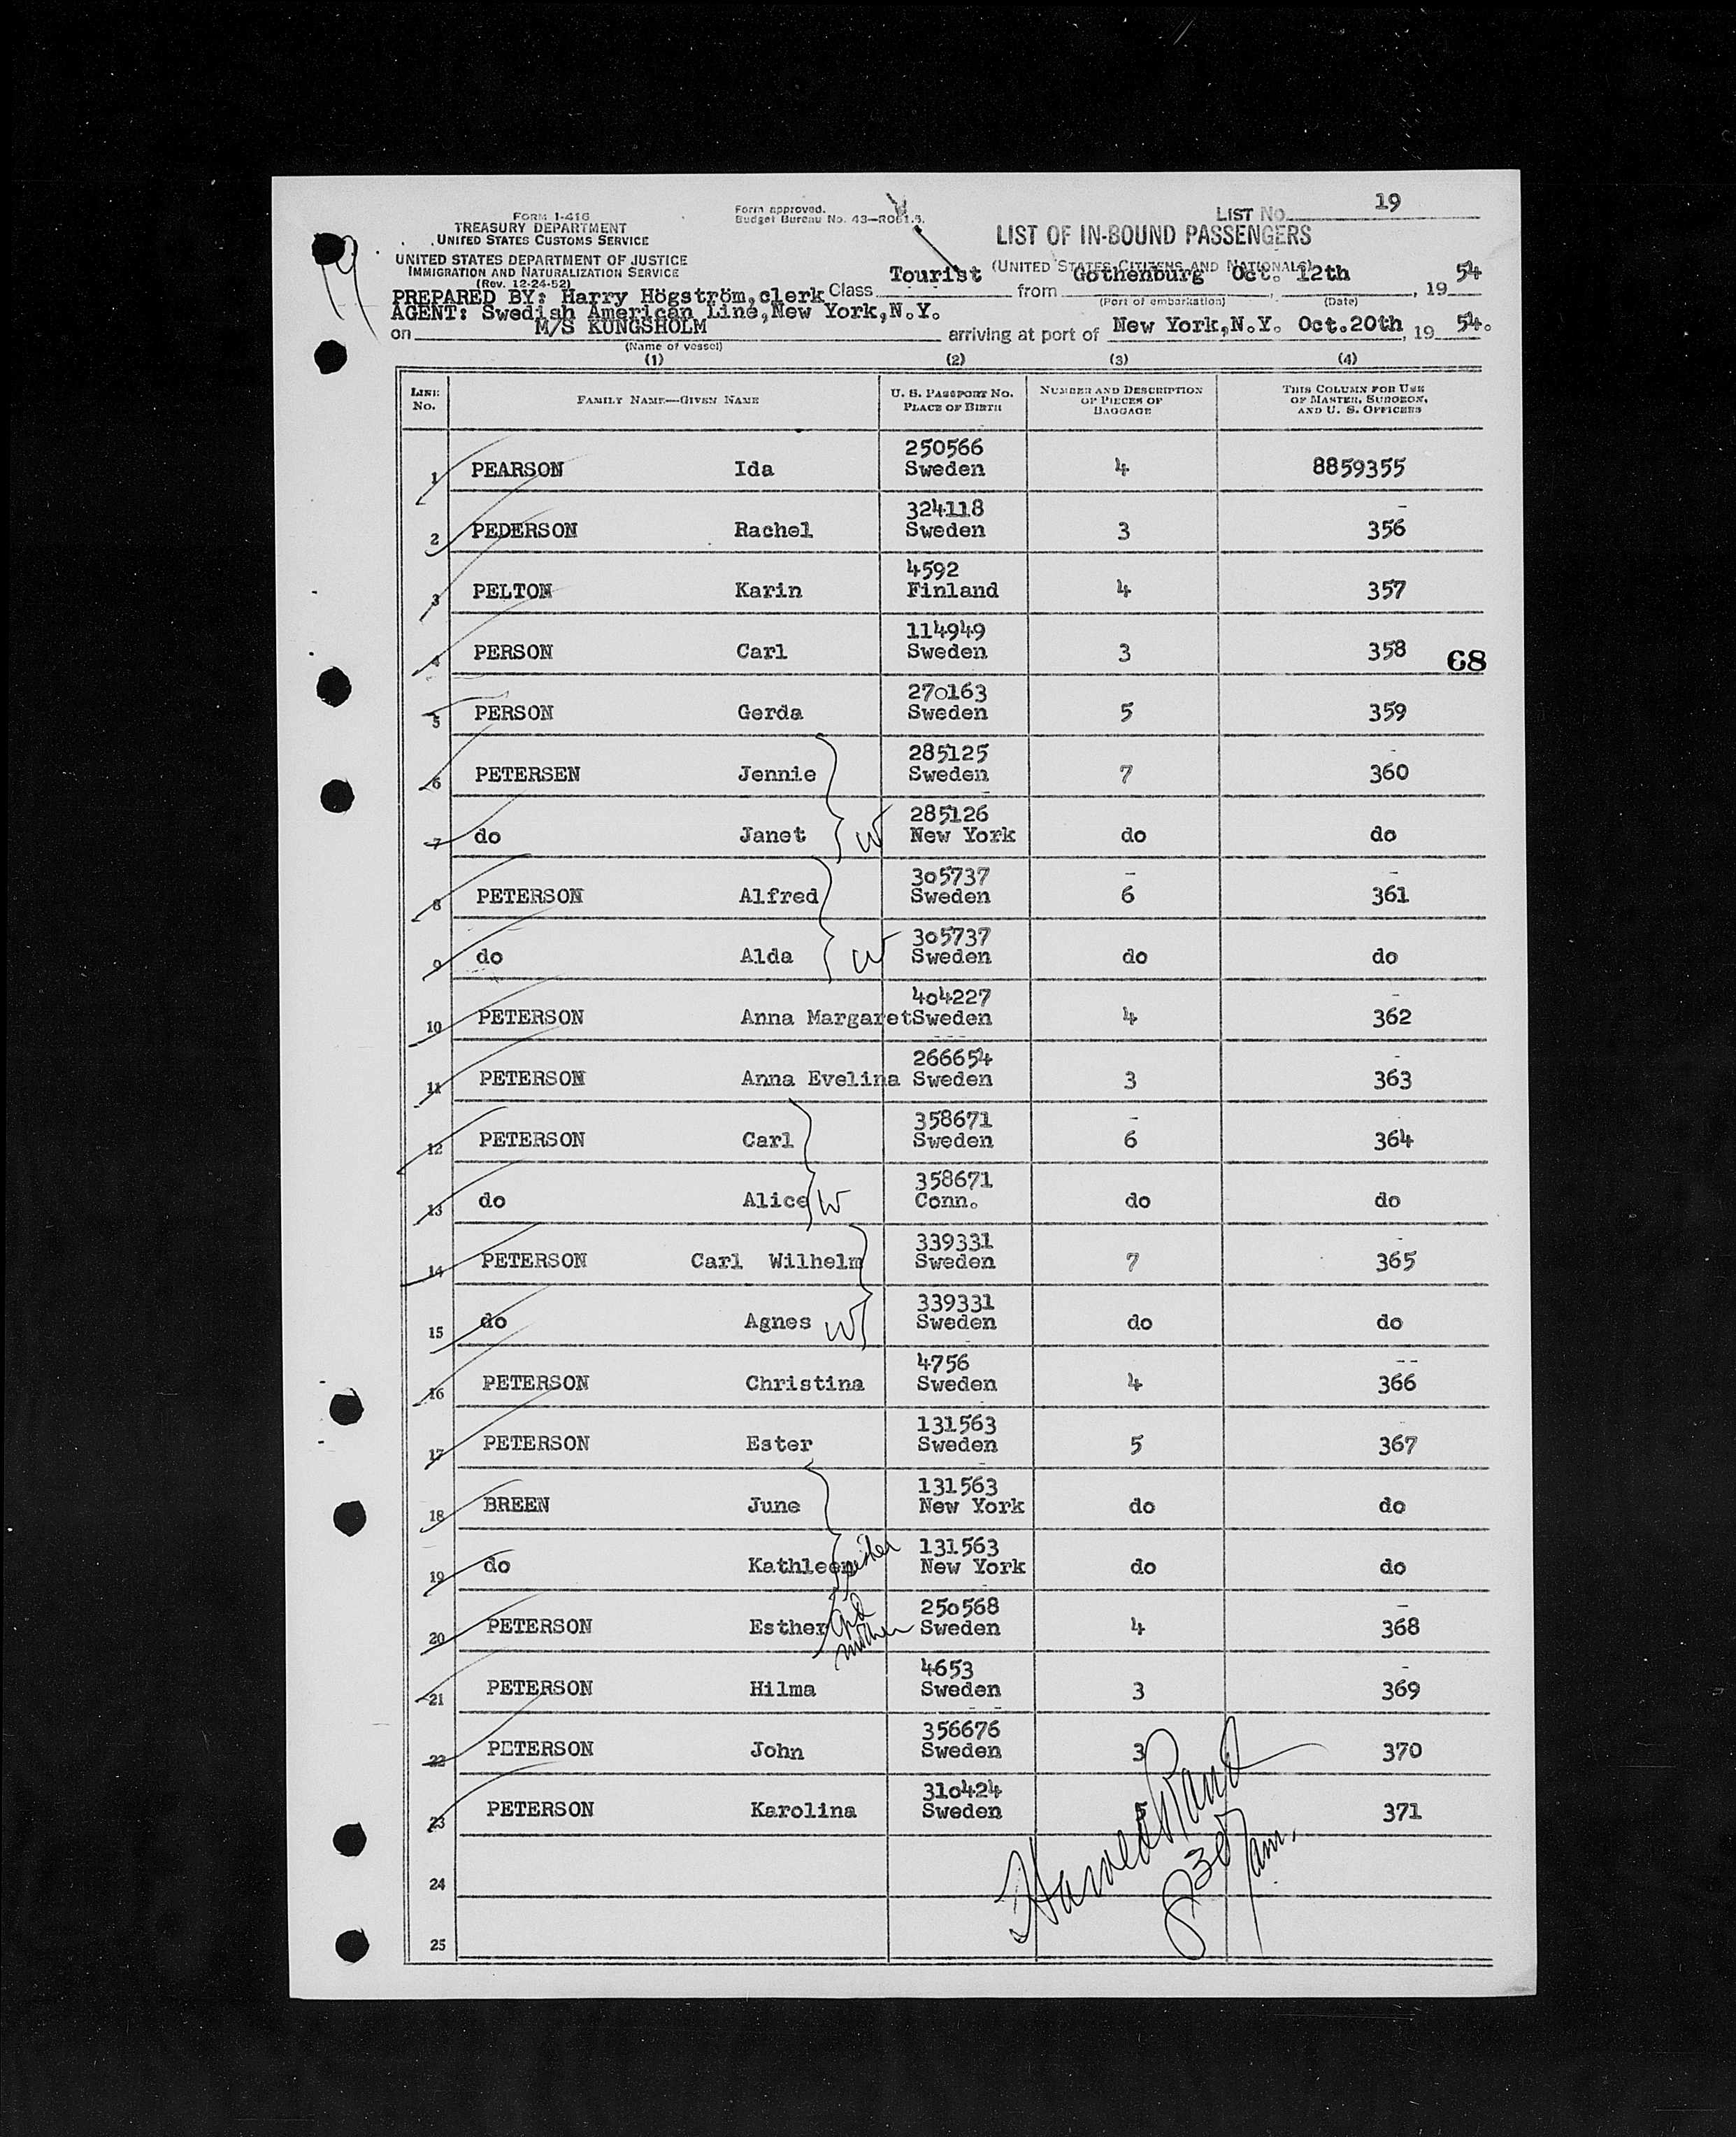 19
LIST No. 19
FORM I-416
TREASURY DEPARTMENT
UNITED STATES CUSTOMS SERVICE
UNITED STATES DEPARTMENT OF JUSTICE
IMMIGRATION AND NATURALIZATION SERVICE
(Rev. 12-24-52)
Form approved.
Budget Bureau No. 43—R061.5.
LIST OF IN-BOUND PASSENGERS
(UNITED STATES CITIZENS AND NATIONALS)
PREPARED BY: Harry Högström, clerk Class Tourist from Gothenburg Oct. 12th, 19 54
(Port of embarkation) (Date)
AGENT: Swedish American Line, New York, N.Y.
on M/S KUNGSHOLM arriving at port of New York, N.Y. Oct. 20th, 19 54.
(Name of vessel)
(1) (2) (3) (4)
LINE No. FAMILY NAME—GIVEN NAME U. S. PASSPORT No. PLACE OF BIRTH NUMBER AND DESCRIPTION OF PIECES OF BAGGAGE THIS COLUMN FOR USE OF MASTER, SURGEON, AND U. S. OFFICERS
250566
1 PEARSON Ida Sweden 4 8859355
324118
2 PEDERSON Rachel Sweden 3 356
4592
3 PELTON Karin Finland 4 357
114949
4 PERSON Carl Sweden 3 358 68
270163
5 PERSON Gerda Sweden 5 359
285125
6 PETERSEN Jennie Sweden 7 360
285126
7 do Janet W New York do do
305737
8 PETERSON Alfred Sweden 6 361
305737
9 do Alda W Sweden do do
404227
10 PETERSON Anna Margaret Sweden 4 362
266654
11 PETERSON Anna Evelina Sweden 3 363
358671
12 PETERSON Carl Sweden 6 364
358671
13 do Alice W Conn. do do
339331
14 PETERSON Carl Wilhelm Sweden 7 365
339331
15 do Agnes W Sweden do do
4756
16 PETERSON Christina Sweden 4 366
131563
17 PETERSON Ester Sweden 5 367
131563
18 BREEN June New York do do
131563
19 do Kathleen sister New York do do
250568
20 PETERSON Esther Gnd mother Sweden 4 368
4653
21 PETERSON Hilma Sweden 3 369
356676
22 PETERSON John Sweden 3 370
310424
23 PETERSON Karolina Sweden 5 371
24
25
830 am.